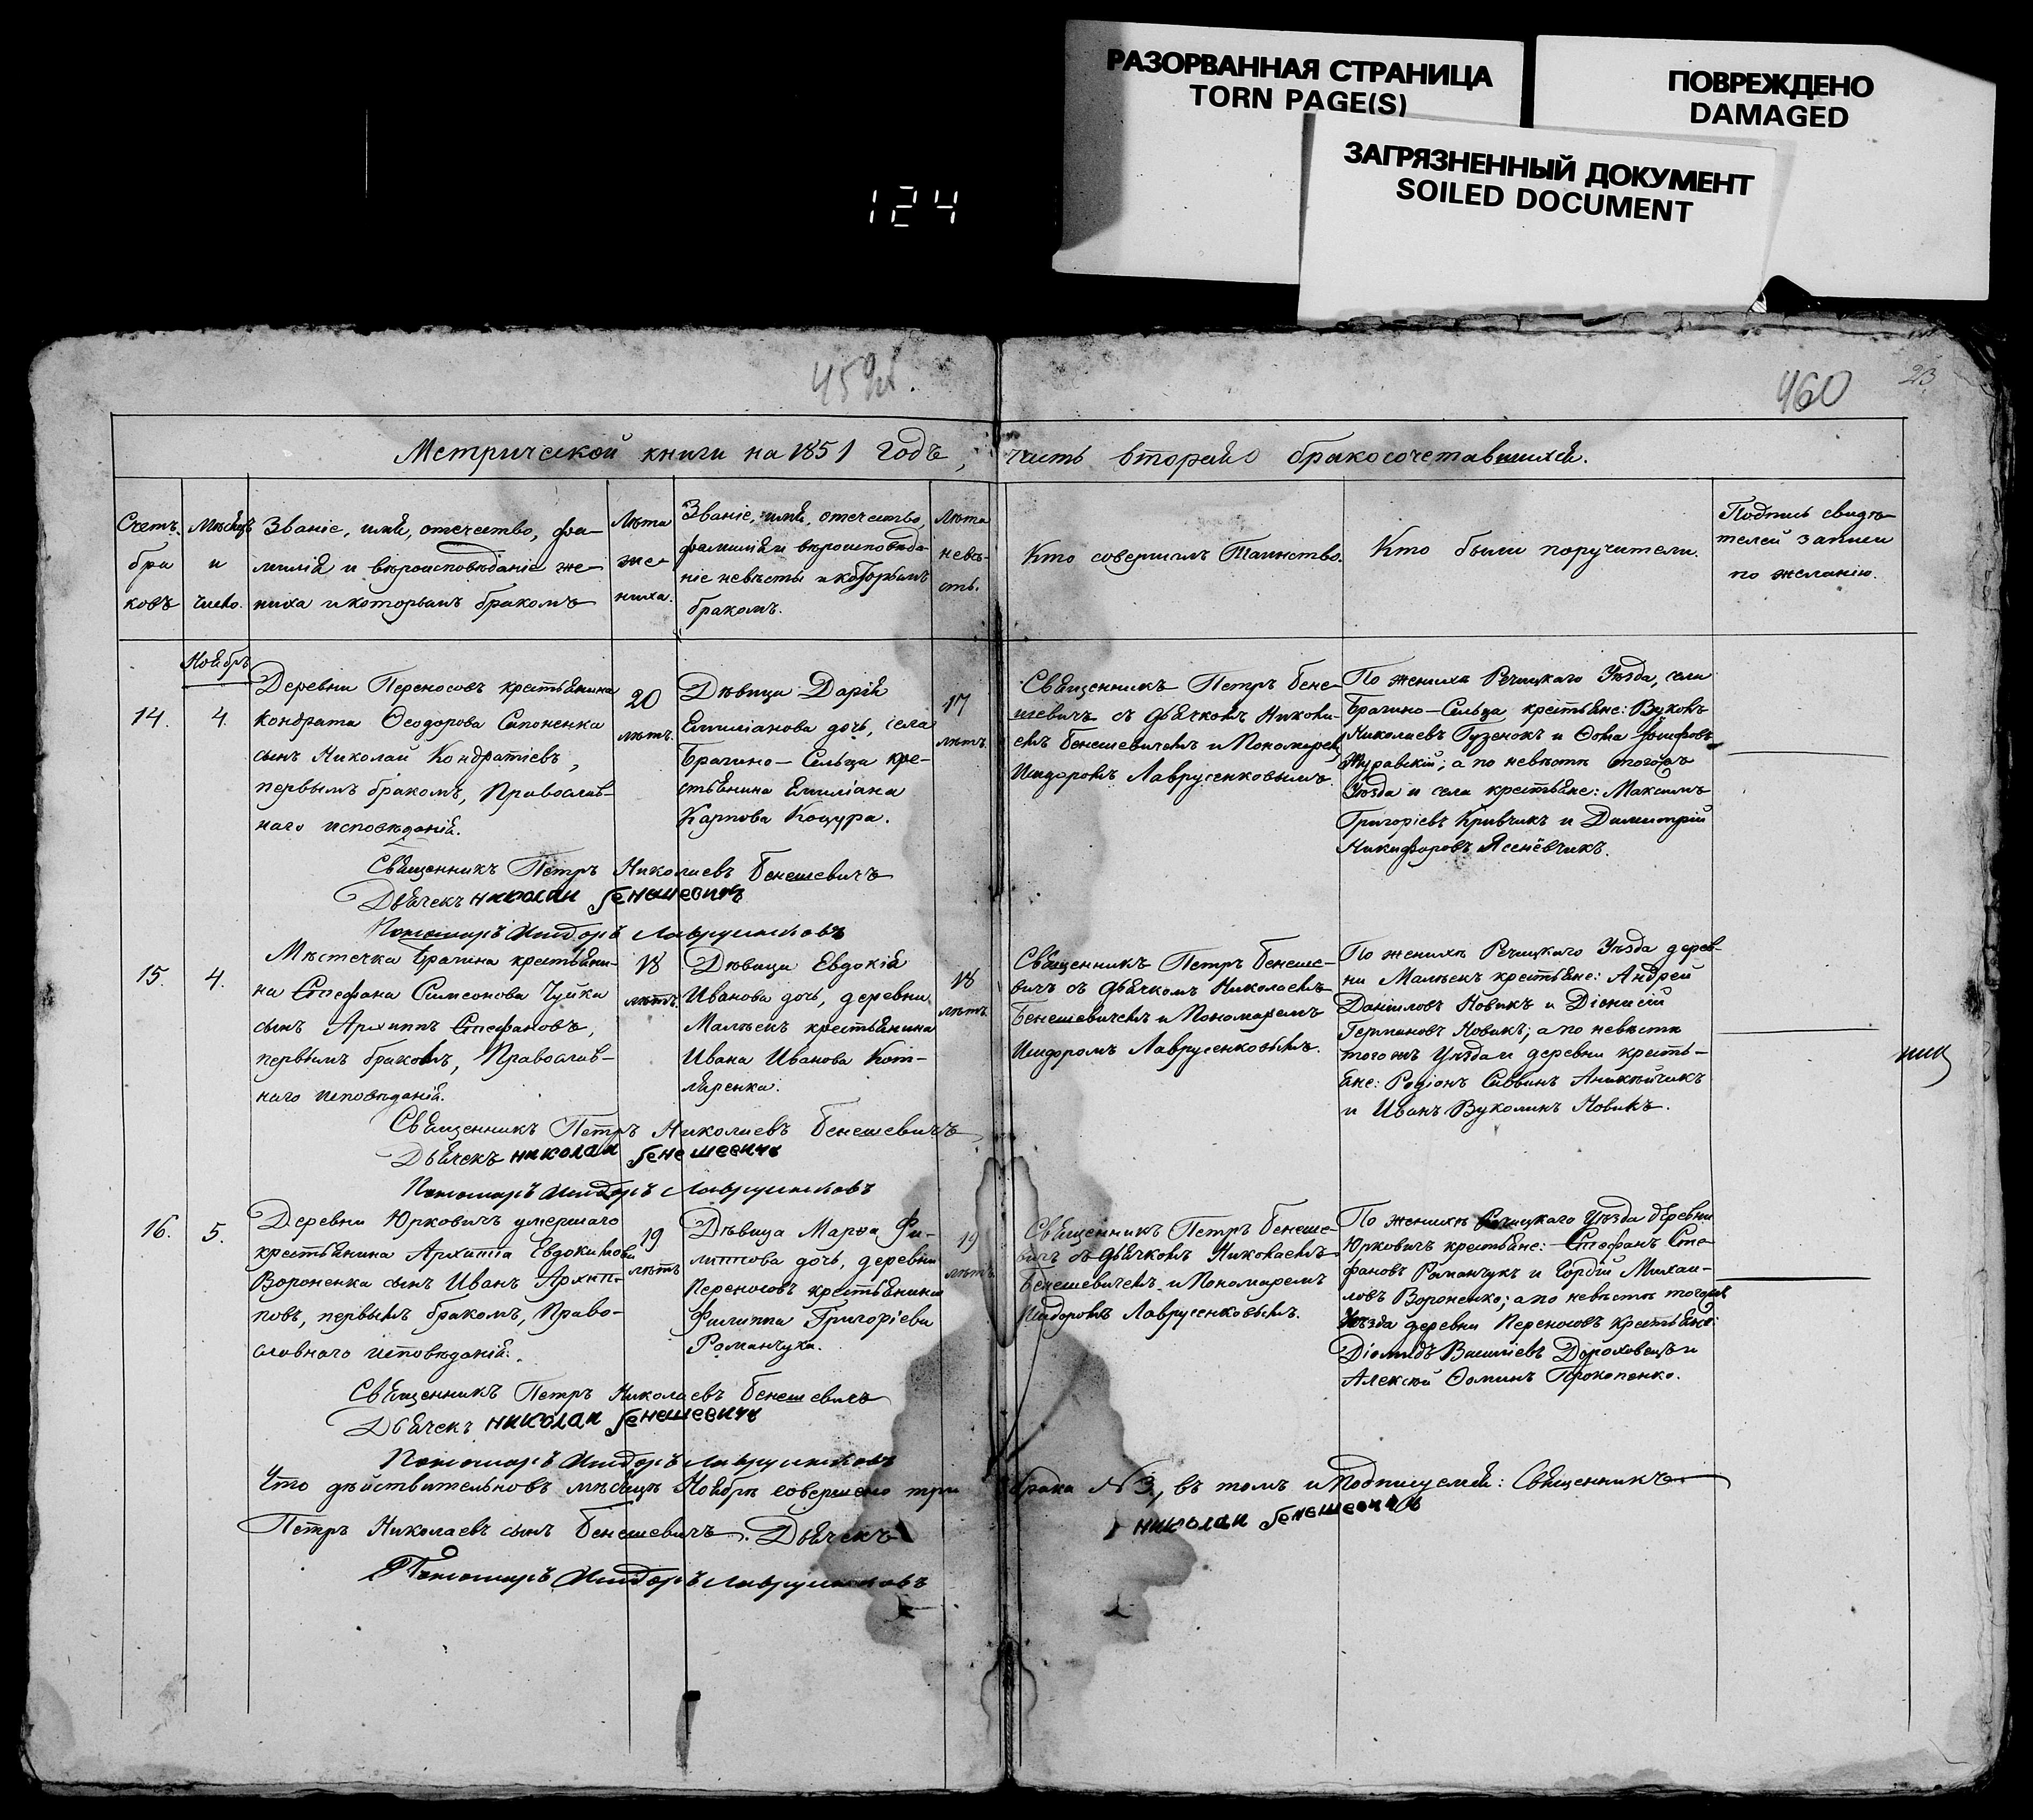 РАЗОРВАННАЯ СТРАНИЦА
TORN PAGE(S)
ПОВРЕЖДЕНО
DAMAGED
ЗАГРЯЗНЕННЫЙ ДОКУМЕНТ
SOILED DOCUMENT
124
460
23
Метрической книги на 1851 годъ, часть вторая о бракосочетавшихся.
Счетъ
бра
ковъ
Мѣсяцъ
и
число.
Званіе, имя, отечество, фа-
милія и вѣроисповѣданіе же-
ниха и которымъ бракомъ
Лѣта
же-
ниха.
Званіе, имя, отечество,
фамилія и вѣроисповѣда-
ніе невѣсты и которымъ
бракомъ.
Лѣта
невѣ-
сты.
Кто совершалъ Таинство.
Кто были поручители.
Подпись свидѣ-
телей записи
по желанію.
Ноябрь
14.
4.
Деревни Переносовъ крестьянина
Кондрата Ѳеодорова Сапоненка
сынъ Николай Кондратіевъ,
первымъ бракомъ, Православ-
наго исповѣданія.
20
лѣтъ.
Дѣвица Дарія
Емиліанова дочь, села
Брагино-Сельца кре-
стьянина Емиліана
Карпова Коцура.
17
лѣтъ.
Священникъ Петръ Бене-
шевичъ съ дьячкомъ Никола-
емъ Бенешевичемъ и Пономаремъ
Исидоромъ Лаврусенковымъ.
По женихѣ Речицкаго Уѣзда, села
Брагино-Сельца крестьяне: Вуколъ
Николаевъ Гузенокъ и Ѳома Іосифовъ
Журавскій; а по невѣстѣ тогожъ
Уѣзда и села крестьяне: Максимъ
Григоріевъ Кривчикъ и Димитрій
Никифоровъ Ясенёвчикъ.
Священникъ Петръ Николаевъ Бенешевичъ
Дьячекъ николаи бенешевичъ
Пономарь Исидоръ Лаврусенковъ
15.
4.
Мѣстечка Брагина крестьяни-
на Стефана Симеонова Чуйка
сынъ Архиппъ Стефановъ,
первымъ бракомъ, Православ-
наго исповѣданія.
18
лѣтъ.
Дѣвица Евдокія
Иванова дочь, деревни
Малѣекъ крестьянина
Ивана Иванова Кот-
ляренка.
18
лѣтъ.
Священникъ Петръ Бенеше-
вичъ съ дьячкомъ Николаемъ
Бенешевичемъ и Пономаремъ
Исидоромъ Лаврусенковымъ.
По женихѣ Речицкаго Уѣзда дерев-
ни Малѣекъ крестьяне: Андрей
Даніиловъ Новикъ и Діонисій
Германовъ Новикъ; а по невѣстѣ
тогожъ Уѣзда и деревни кресть-
яне: Родіонъ Саввинъ Аникѣйчикъ
и Иванъ Вуколинъ Новикъ.
Священникъ Петръ Николаевъ Бенешевичъ
Дьячекъ николаи бенешевичъ
Пономарь Исидоръ Лаврусенковъ
16.
5.
Деревни Юрковичъ умершаго
крестьянина Архиппа Евдокимова
Вороненка сынъ Иванъ Архип-
повъ, первымъ бракомъ, Право-
славнаго исповѣданія.
19
лѣтъ
Дѣвица Марѳа Фи-
липпова дочь, деревни
Переносовъ крестьянина
Филиппа Григоріева
Романчука.
19
лѣтъ.
Священникъ Петръ Бенеше-
вичъ съ дьячкомъ Николаемъ
Бенешевичемъ и Пономаремъ
Исидоромъ Лаврусенковымъ.
По женихѣ Речицкаго Уѣзда деревни
Юрковичъ крестьяне: Стефанъ Сте-
фановъ Романчукъ и Гордій Михаи-
ловъ Вороненко; а по невѣстѣ тогожъ
Уѣзда деревни Переносовъ крестьяне:
Діомидъ Василіевъ Дороховецъ и
Алексій Ѳоминъ Прокопенко.
Священникъ Петръ Николаевъ Бенешевичъ
Дьячекъ николаи бенешевичъ
Пономарь Исидоръ Лаврусенковъ
Что дѣйствительно въ мѣсяцѣ Ноябрѣ совершено три брака № 3, въ томъ и подписуемся: Священникъ
Петръ Николаевъ сынъ Бенешевичъ. Дьячекъ николаи бенешевичъ
Пономарь Исидоръ Лаврусенковъ